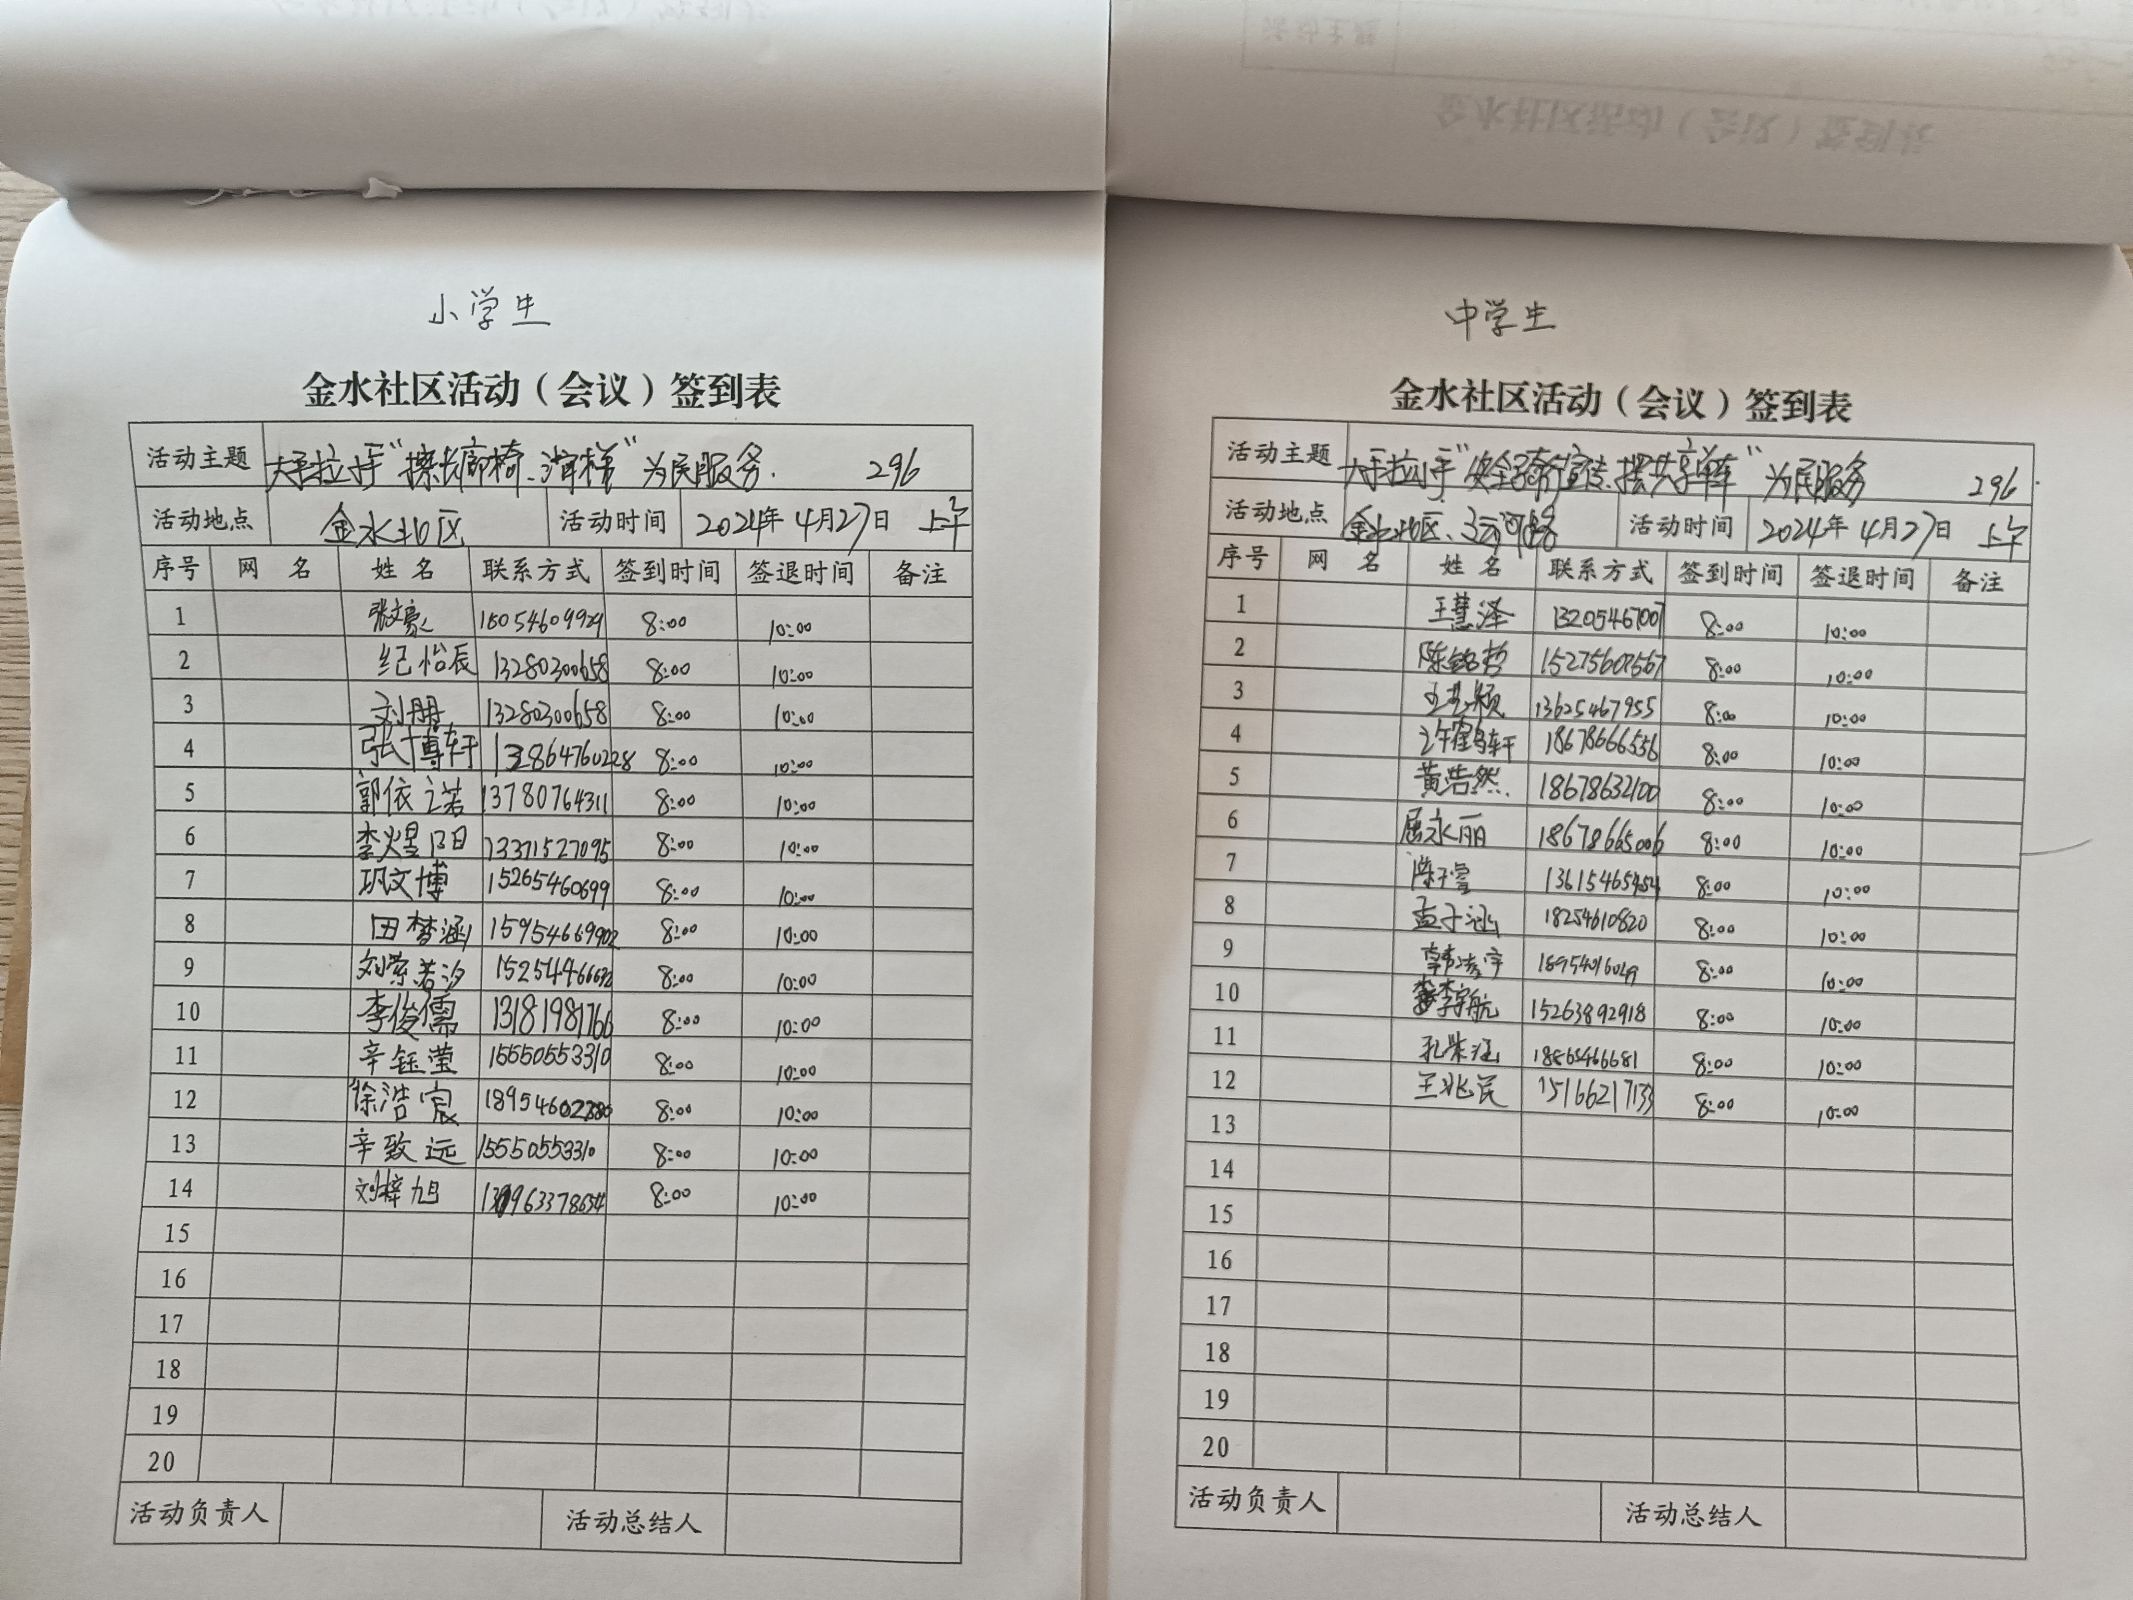 小学生
金水社区活动（会议）签到表
活动主题 大手拉小手“擦长廊椅、清样”为民服务. 296
活动地点 金水北区 活动时间 2024年4月27日 上午
序号 网 名 姓 名 联系方式 签到时间 签退时间 备注
1 张文豪 15054609929 8:00 10:00
2 纪怡辰 13280300658 8:00 10:00
3 刘朋 13280300658 8:00 10:00
4 张博轩 13864760228 8:00 10:00
5 郭依之若 13780764311 8:00 10:00
6 李煜阳 13371527095 8:00 10:00
7 巩文博 15265460699 8:00 10:00
8 田梦涵 15954669902 8:00 10:00
9 刘紫若汐 8:00 10:00
10 李俊儒 13181981766 8:00 10:00
11 辛钰莹 15550553310 8:00 10:00
12 徐浩宸 8:00 10:00
13 辛致远 15550553310 8:00 10:00
14 刘梓旭 8:00 10:00
15
16
17
18
19
20
活动负责人 活动总结人
中学生
金水社区活动（会议）签到表
活动主题 大手拉小手“安全骑行宣传、摆共享单车”为民服务 296
活动地点 金水北区、运河路 活动时间 2024年4月27日 上午
序号 网 名 姓 名 联系方式 签到时间 签退时间 备注
1 王慧泽 13205467007 8:00 10:00
2 陈铭哲 15275607567 8:00 10:00
3 13625467955 8:00 10:00
4 许鹤轩 18678666556 8:00 10:00
5 黄浩然 18678632100 8:00 10:00
6 屈永丽 18678665006 8:00 10:00
7 陈子萱 13615465454 8:00 10:00
8 孟子涵 18254610820 8:00 10:00
9 8:00 10:00
10 李宇航 15263892918 8:00 10:00
11 18865466681 8:00 10:00
12 王兆民 15166217133 8:00 10:00
13
14
15
16
17
18
19
20
活动负责人 活动总结人